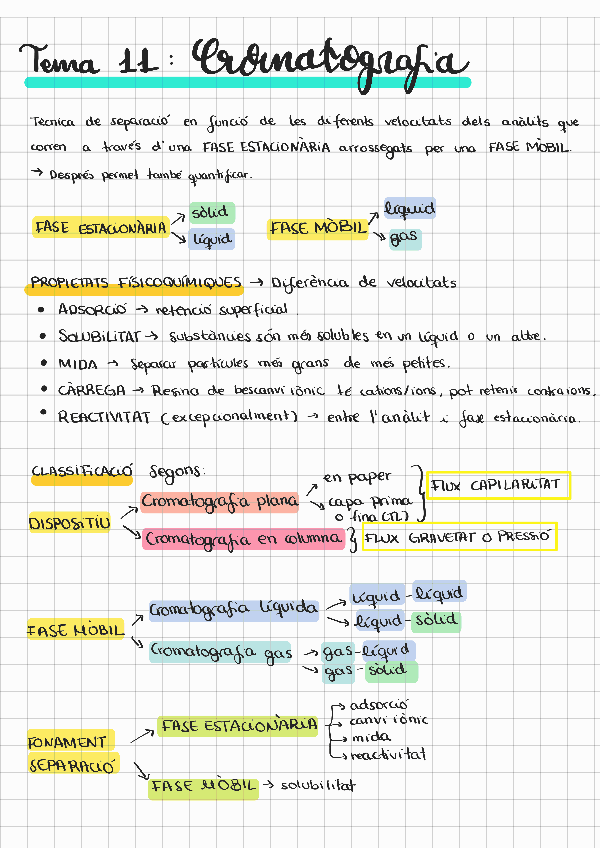 Tema 11: Cromatografia
Tècnica de separació en funció de les diferents velocitats dels anàlits que
corren a través d'una FASE ESTACIONÀRIA arrossegats per una FASE MÒBIL.
→ Després permet també quantificar.
FASE ESTACIONÀRIA → sòlid
→ líquid
FASE MÒBIL → líquid
→ gas
PROPIETATS FÍSICOQUÍMIQUES → Diferència de velocitats
• ADSORCIÓ → retenció superficial.
• SOLUBILITAT → Substàncies són més solubles en un líquid o un altre.
• MIDA → Separar partícules més grans de més petites.
• CÀRREGA → Resina de bescanvi iònic té cations/ions, pot retenir contraions.
• REACTIVITAT (excepcionalment) → entre l'anàlit i fase estacionària.
CLASSIFICACIÓ segons:
DISPOSITIU
→ Cromatografia plana → en paper
→ capa prima
o fina (TL)
FLUX CAPILARITAT
→ Cromatografia en columna } FLUX GRAVETAT O PRESSIÓ
FASE MÒBIL
→ Cromatografia líquida → líquid - líquid
→ líquid - sòlid
→ Cromatografia gas → gas - líquid
→ gas - sòlid
FONAMENT
SEPARACIÓ
→ FASE ESTACIONÀRIA → adsorció
→ canvi iònic
→ mida
→ reactivitat
→ FASE MÒBIL → solubilitat